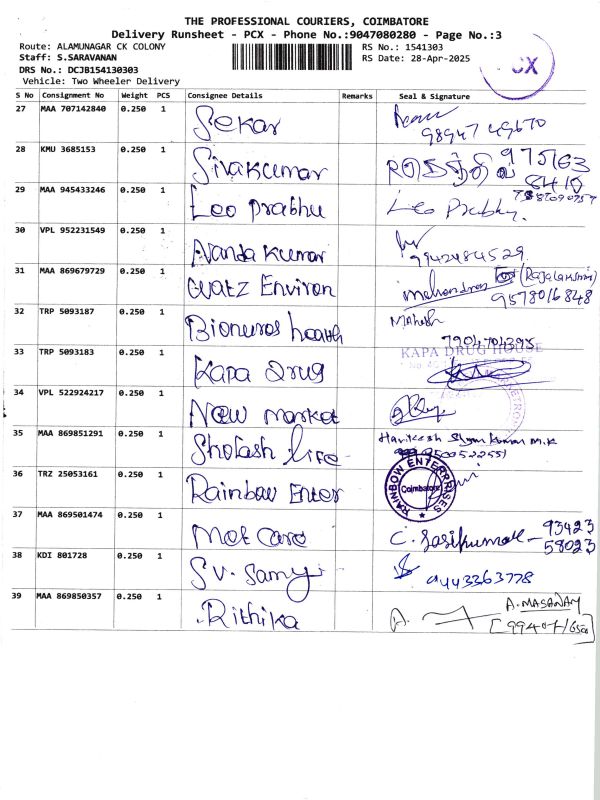 THE PROFESSIONAL COURIERS, COIMBATORE
Delivery Runsheet - PCX - Phone No.:9047080280 - Page No.:3
Route: ALAMUNAGAR CK COLONY
Staff: S.SARAVANAN
DRS No.: DCJB154130303
Vehicle: Two Wheeler Delivery
RS No.: 1541303
RS Date: 28-Apr-2025
CX
S No Consignment No Weight PCS Consignee Details Remarks Seal & Signature
27 MAA 707142840 0.250 1 Sekar 98947 49670
28 KMU 3685153 0.250 1 Sivakumar 975163
8410
29 MAA 945433246 0.250 1 Leo Prabhu Leo Prabhu.
30 VPL 952231549 0.250 1 Ananda Kumar 9942484529
31 MAA 869679729 0.250 1 Watz Environ Mahendran (Rajalakshmi)
9578016848
32 TRP 5093187 0.250 1 Bionuros health Mahesh
7904704395
33 TRP 5093183 0.250 1 Kapa Drug KAPA DRUG HOUSE
34 VPL 522924217 0.250 1 New market
35 MAA 869851291 0.250 1 Sholash life Hariteesh Shyam Kumar M.K
9500522551
36 TRZ 25053161 0.250 1 Rainbow Enter RAINBOW ENTERPRISES
Coimbatore
37 MAA 869501474 0.250 1 Met Care C. Sasikumar - 93423
58023
38 KDI 801728 0.250 1 S.V. Samy 9443363778
39 MAA 869850357 0.250 1 Rithika A. A. MASANAM